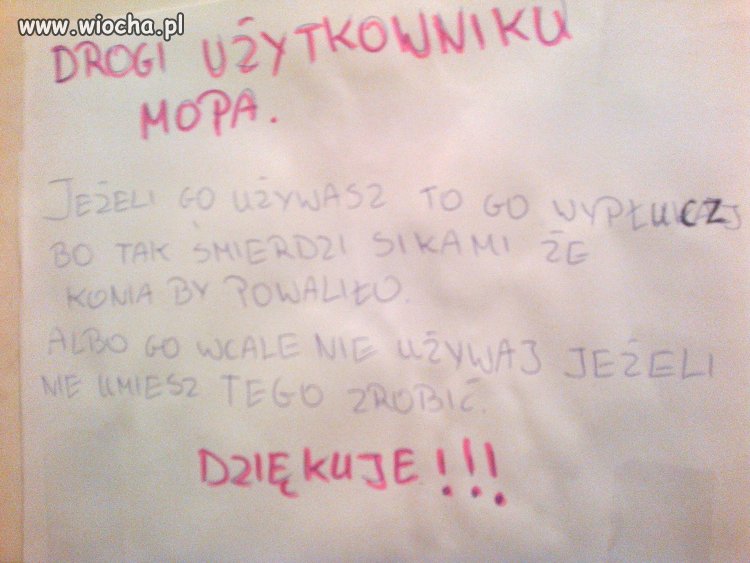 www.wiocha.pl
DROGI UŻYTKOWNIKU
MOPA.
JEŻELI GO UŻYWASZ TO GO WYPŁUCZ
BO TAK ŚMIERDZI SIKAMI ŻE
KONIA BY POWALIŁO.
ALBO GO WCALE NIE UŻYWAJ JEŻELI
NIE UMIESZ TEGO ZROBIĆ.
DZIĘKUJE!!!